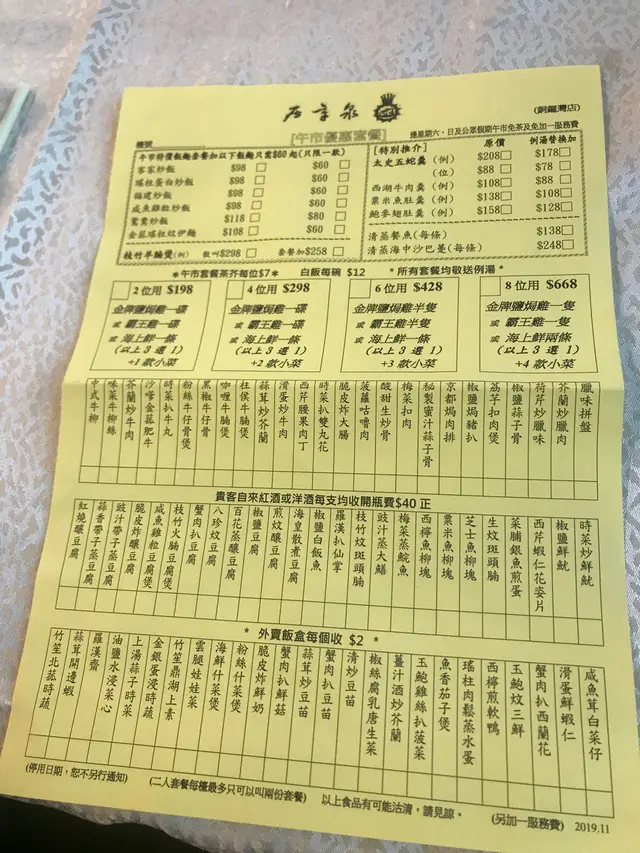 石寨泉
(銅鑼灣店)
[午市優惠套餐]
逢星期六、日及公眾假期午市免茶及免加一服務費
檯號
午市特價飯麵套餐加以下飯麵只需$60起(只限一款)
客家炒飯 $98 $60
瑤柱蛋白炒飯 $98 $60
福建炒飯 $98 $60
咸魚雞粒炒飯 $98 $60
鴛鴦炒飯 $118 $80
金菇瑤柱炆伊麵 $108 $60
枝竹羊腩煲(例) 散叫$298 套餐加$258
[特別推介] 原價 例湯替換加
太史五蛇羹 (例) $208 $178
(位) $88 $78
西湖牛肉羹 (例) $108 $88
粟米魚肚羹 (例) $138 $108
鮑參翅肚羹 (例) $158 $128
清蒸鮗魚(每條) $138
清蒸海中沙巴是(每條) $248
*午市套餐茶芥每位$7* 白飯每碗 $12 *所有套餐均敬送例湯*
2 位用 $198
金牌鹽焗雞一碟
或 霸王雞一碟
或 海上鮮一條
(以上3選1)
+1款小菜
4 位用 $298
金牌鹽焗雞一碟
或 霸王雞一碟
或 海上鮮一條
(以上3選1)
+2款小菜
6 位用 $428
金牌鹽焗雞半隻
或 霸王雞半隻
或 海上鮮一條
(以上3選1)
+3款小菜
8 位用 $668
金牌鹽焗雞一隻
或 霸王雞一隻
或 海上鮮兩條
(以上3選1)
+4款小菜
臘味拼盤
芥蘭炒臘肉
荷芹炒臘味
椒鹽蒜子骨
荔芋扣肉煲
椒鹽焗豬扒
京都焗肉排
秘製蜜汁蒜子骨
梅菜扣肉
酸甜生炒骨
菠蘿咕嚕肉
脆皮炸大腸
時菜扒雙丸花
西芹腰果肉丁
滑蛋炒牛肉
蒜茸炒芥蘭
柱侯牛腩煲
咖喱牛腩煲
黑椒牛仔骨
粉絲牛仔骨煲
時菜扒牛丸
沙嗲金菇肥牛
芥蘭炒牛肉
味菜牛柳絲
中式牛柳
貴客自來紅酒或洋酒每支均收開瓶費$40 正
時菜炒鮮魷
椒鹽鮮魷
西芹蝦仁花姿片
菜脯銀魚煎蛋
生炆斑頭腩
芝士魚柳塊
粟米魚柳塊
西檸魚柳塊
梅菜蒸鯇魚
豉汁蒸大鱔
枝竹炆斑頭腩
羅漢扒仙掌
椒鹽白飯魚
海皇散煮豆腐
煎炆釀豆腐
椒鹽豆腐
百花蒸釀豆腐
八珍炆豆腐
蟹肉扒豆腐
枝竹火腩豆腐煲
咸魚雞粒豆腐煲
脆皮炸釀豆腐
豉汁帶子蒸豆腐
蒜香帶子蒸豆腐
紅燒釀豆腐
* 外賣飯盒每個收 $2 *
咸魚茸白菜仔
滑蛋鮮蝦仁
蟹肉扒西蘭花
玉鮑炆三鮮
西檸煎軟鴨
瑤柱肉鬆蒸水蛋
魚香茄子煲
玉鮑雞絲扒菠菜
薑汁酒炒芥蘭
椒絲腐乳唐生菜
清炒豆苗
蟹肉扒豆苗
蒜茸炒豆苗
蟹肉扒鮮菇
脆皮炸鮮奶
粉絲什菜煲
海鮮什菜煲
雲腿娃娃菜
竹笙鼎湖上素
金銀蛋浸時蔬
上湯蒜子時菜
油鹽水浸菜心
羅漢齋
蒜茸開邊蝦
竹笙北菇時蔬
(停用日期，恕不另行通知) (二人套餐每檯最多只可以叫兩份套餐) 以上食品有可能沽清，請見諒。 (另加一服務費) 2019.11